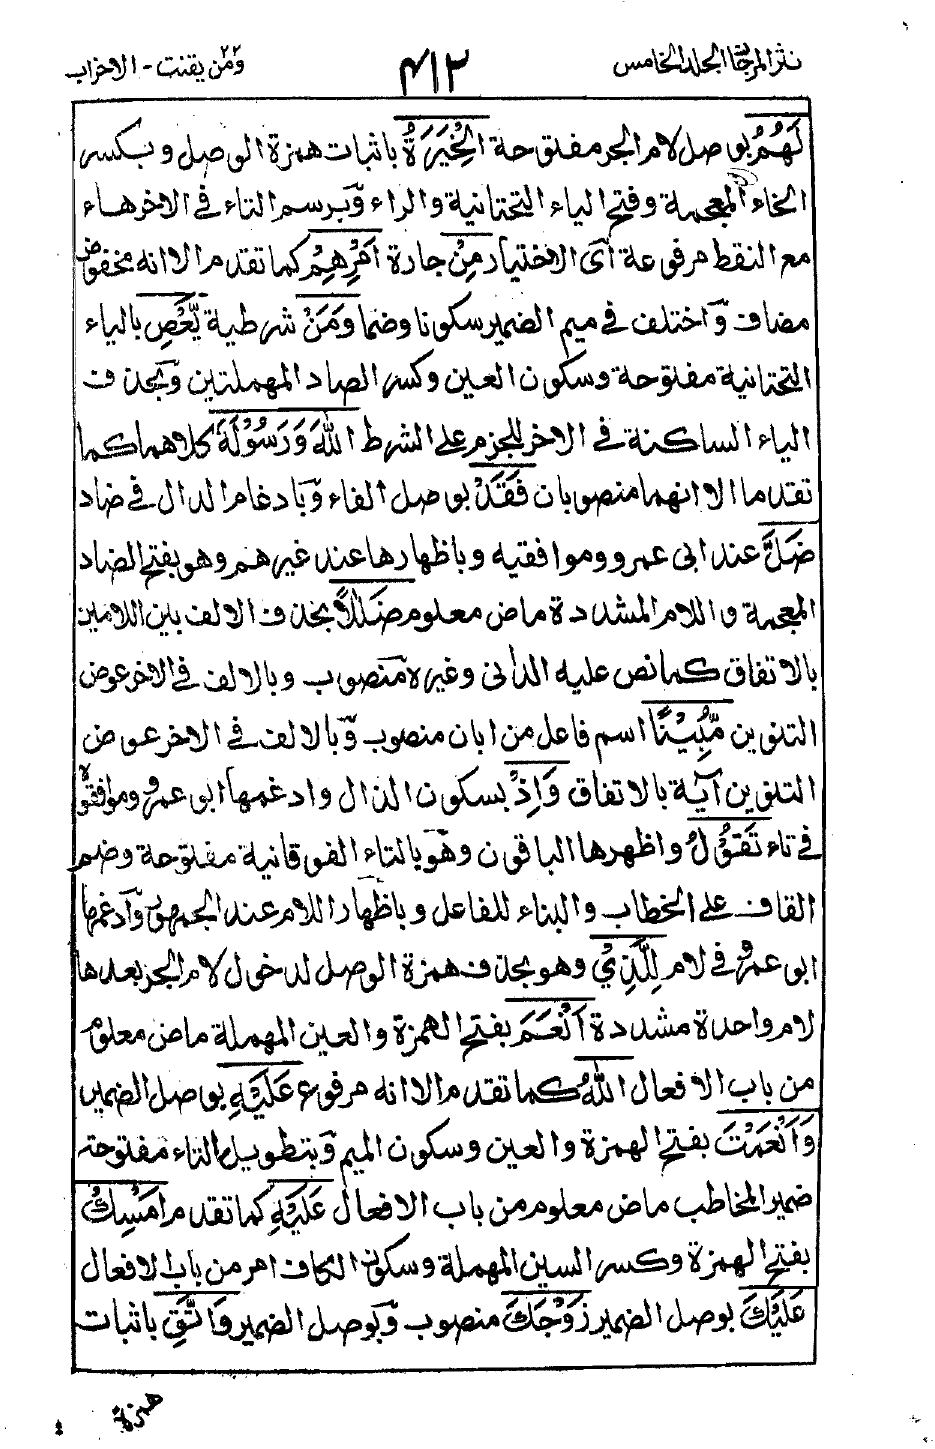 نثر المرجان المجلد الخامس
٤١٢
ومن يقنت ٢٢ - الاحزاب
لَهُمُ بوصل لام الجر مفتوحة الْخِيَرَةُ باثبات همزة الوصل وبكسر
الخاء المعجمة وفتح الياء التحتانية والراء وبرسم التاء فى الاخر هاء
مع النقط مرفوعة أى الاختيار مِنْ جارة اَمْرِهِمْ كما تقدم الا انه مخفوض
مضاف واختلف فى ميم الضمير سكونا وضما وَمَنْ شرطية يَّعْصِ بالياء
التحتانية مفتوحة وسكون العين وكسر الصاد المهملتين وبحذف
الياء الساكنة فى الاخر للجزم على الشرط اللهَ وَرَسُوْلَهٗ كلاهما كما
تقدما الا انهما منصوبان فَقَدْ بوصل الفاء وبادغام الدال فى ضاد
ضَلَّ عند ابى عمرو وموافقيه وباظهارها عند غيرهم وهو بفتح الضاد
المعجمة واللام المشددة ماض معلوم ضَلٰلًا بحذف الالف بين اللامين
بالاتفاق كما نص عليه الدانى وغيره منصوب وبالالف فى الاخر عوض
التنوين مُّبِيْنًا اسم فاعل من ابان منصوب وبالالف فى الاخر عوض
التنوين آية بالاتفاق وَاِذْ بسكون الذال وادغمها ابو عمرو وموافقوه
فى تاء تَقُوْلُ واظهرها الباقون وهو بالتاء الفوقانية مفتوحة وضم
القاف على الخطاب والبناء للفاعل وباظهار اللام عند الجمهور وادغمها
ابو عمرو فى لام لِلَّذِيْ وهو بحذف همزة الوصل لدخول لام الجر بعدها
لام واحدة مشددة اَنْعَمَ بفتح الهمزة والعين المهملة ماض معلوم
من باب الافعال اللهُ كما تقدم الا انه مرفوع عَلَيْهِ بوصل الضمير
وَاَنْعَمْتَ بفتح الهمزة والعين وسكون الميم وبتطويل التاء مفتوحة
ضمير المخاطب ماض معلوم من باب الافعال عَلَيْهِ كما تقدم اَمْسِكْ
بفتح الهمزة وكسر السين المهملة وسكون الكاف امر من باب الافعال
عَلَيْكَ بوصل الضمير زَوْجَكَ منصوب وبوصل الضمير وَاتَّقِ باثبات
همزة